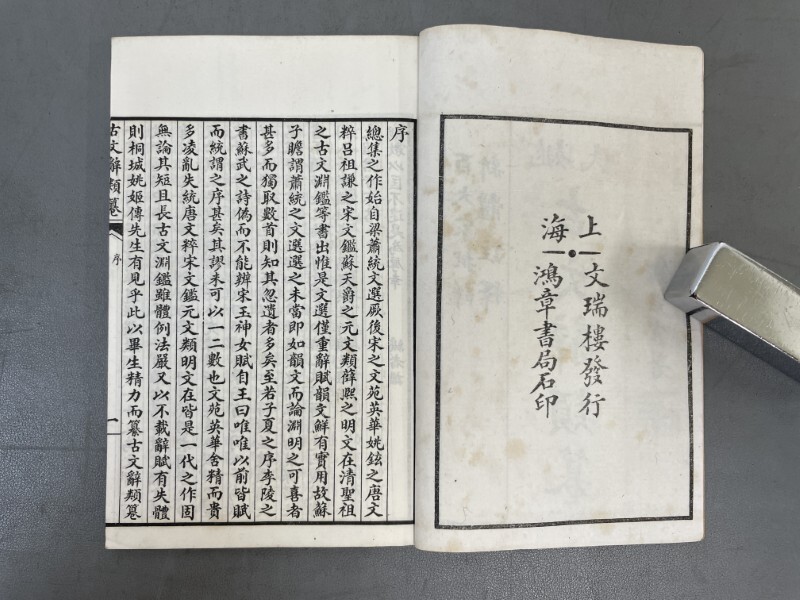 上海
文瑞樓發行
鴻章書局石印
序
總集之作始自梁蕭統文選厥後宋之文苑英華姚鉉之唐文
粹呂祖謙之宋文鑑蘇天爵之元文類薛熙之明文在清聖祖
之古文淵鑑等書出惟是文選僅重辭賦韻文鮮有實用故蘇
子瞻謂蕭統之文選選之未當即如韻文而論淵明之可喜者
甚多而獨取數首則知其忽遺者多矣至若子夏之序李陵之
書蘇武之詩偽而不能辨宋玉神女賦自王曰唯唯以前皆賦
而統謂之序甚矣其謬未可以一二數也文苑英華舍精而貴
多凌亂失統唐文粹宋文鑑元文類明文在皆是一代之作固
無論其短且長古文淵鑑雖體例法嚴又以不載辭賦有失體
則桐城姚姬傳先生有見乎此以畢生精力而纂古文辭類篹
古文辭類篹
序
一